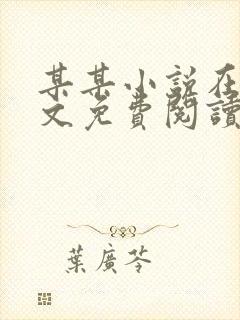 某某小说在
文免費閱讀
葉廣芩